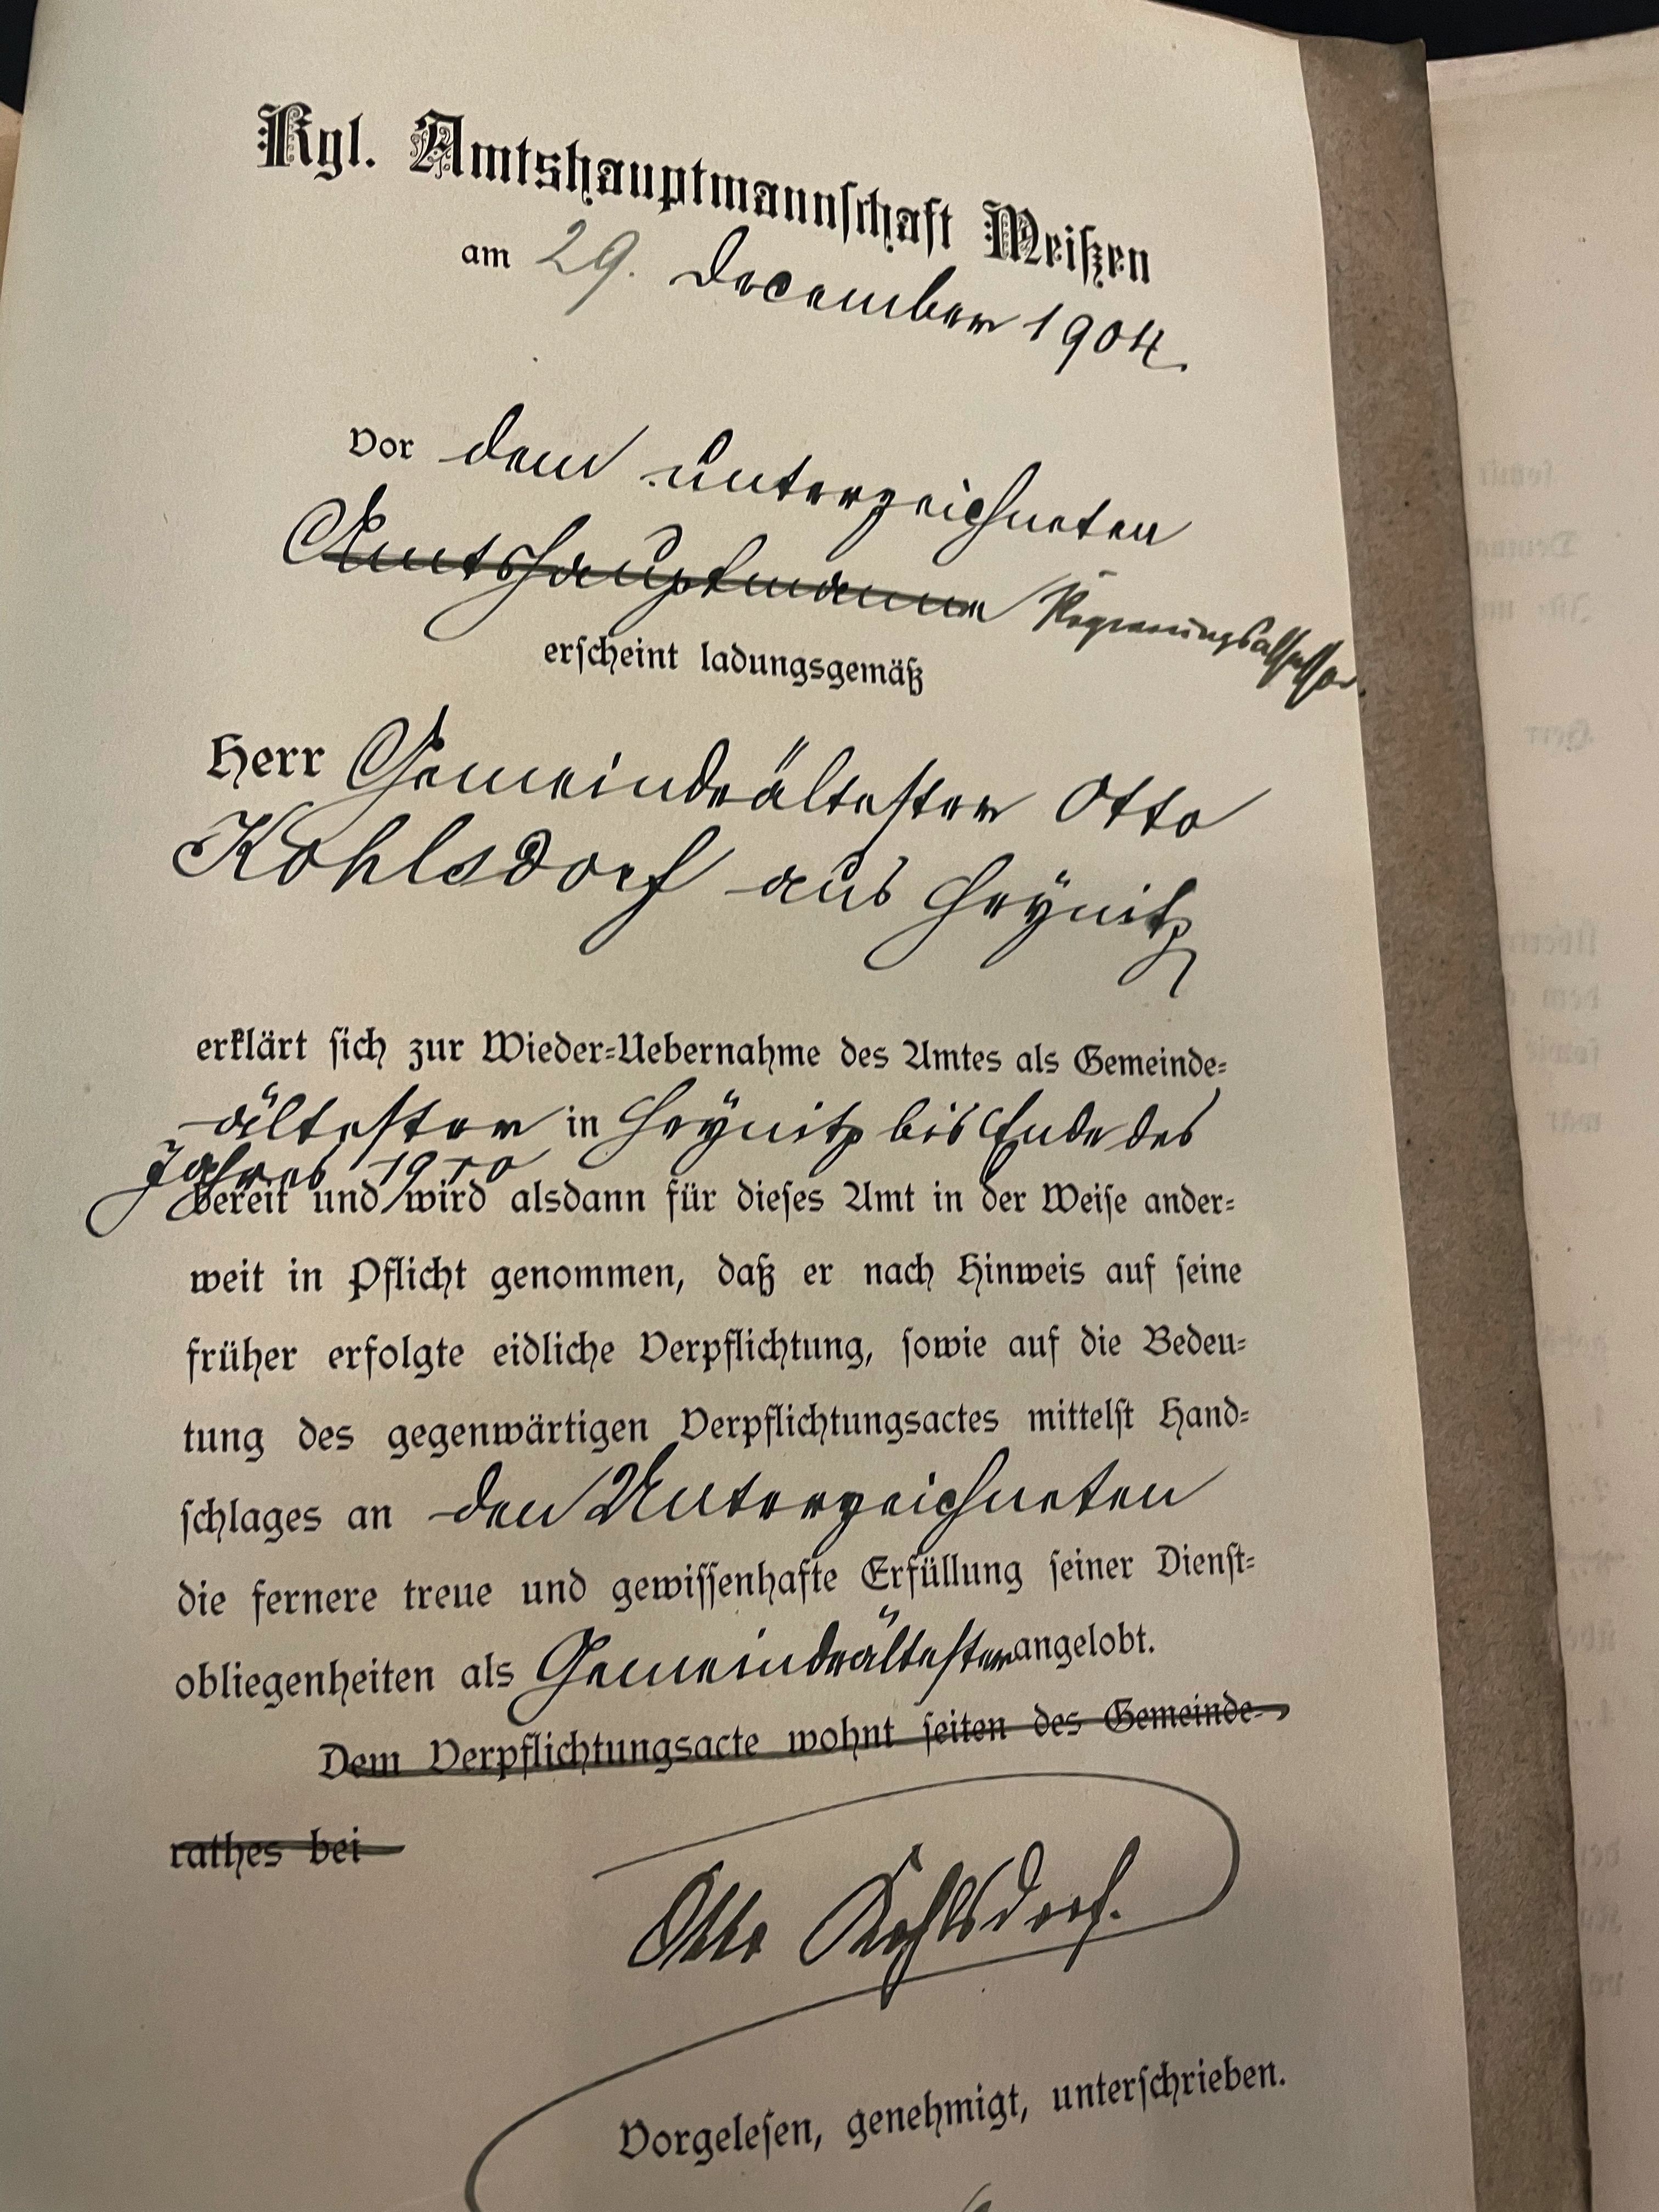 Kgl. Amtshauptmannschaft Meißen
am 29. December 1904.
Vor dem unterzeichneten
Amtshauptmanne Regierungsassessor.
erscheint ladungsgemäß
Herr Gemeindeältester Otto
Kohlsdorf aus Heÿnitz
erklärt sich zur Wieder-Uebernahme des Amtes als Gemeinde-
ältester in Heÿnitz bis Ende des
Jahres 1910
bereit und wird alsdann für dieses Amt in der Weise ander-
weit in Pflicht genommen, daß er nach Hinweis auf seine
früher erfolgte eidliche Verpflichtung, sowie auf die Bedeu-
tung des gegenwärtigen Verpflichtungsactes mittelst Hand-
schlages an den Unterzeichneten
die fernere treue und gewissenhafte Erfüllung seiner Dienst-
obliegenheiten als Gemeindeältester angelobt.
Dem Verpflichtungsacte wohnt seiten des Gemeinde-
rathes bei
Otto Kohlsdorf.
Vorgelesen, genehmigt, unterschrieben.